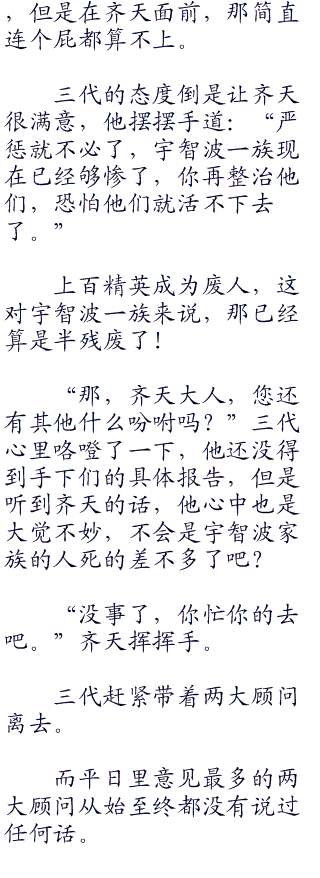 ，但是在齐天面前，那简直
连个屁都算不上。
三代的态度倒是让齐天
很满意，他摆摆手道：“严
惩就不必了，宇智波一族现
在已经够惨了，你再整治他
们，恐怕他们就活不下去
了。”
上百精英成为废人，这
对宇智波一族来说，那已经
算是半残废了！
“那，齐天大人，您还
有其他什么吩咐吗？”三代
心里咯噔了一下，他还没得
到手下们的具体报告，但是
听到齐天的话，他心中也是
大觉不妙，不会是宇智波家
族的人死的差不多了吧？
“没事了，你忙你的去
吧。”齐天挥挥手。
三代赶紧带着两大顾问
离去。
而平日里意见最多的两
大顾问从始至终都没有说过
任何话。